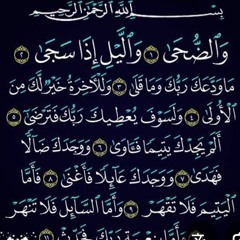 بِسْمِ اللَّهِ الرَّحْمَٰنِ الرَّحِيمِ
وَالضُّحَىٰ ١ وَاللَّيْلِ إِذَا سَجَىٰ ٢
مَا وَدَّعَكَ رَبُّكَ وَمَا قَلَىٰ ٣ وَلَلْآخِرَةُ خَيْرٌ لَّكَ مِنَ
الْأُولَىٰ ٤ وَلَسَوْفَ يُعْطِيكَ رَبُّكَ فَتَرْضَىٰ ٥
أَلَمْ يَجِدْكَ يَتِيمًا فَآوَىٰ ٦ وَوَجَدَكَ ضَالًّا
فَهَدَىٰ ٧ وَوَجَدَكَ عَائِلًا فَأَغْنَىٰ ٨ فَأَمَّا
الْيَتِيمَ فَلَا تَقْهَرْ ٩ وَأَمَّا السَّائِلَ فَلَا تَنْهَرْ
١٠ وَأَمَّا بِنِعْمَةِ رَبِّكَ فَحَدِّثْ ١١